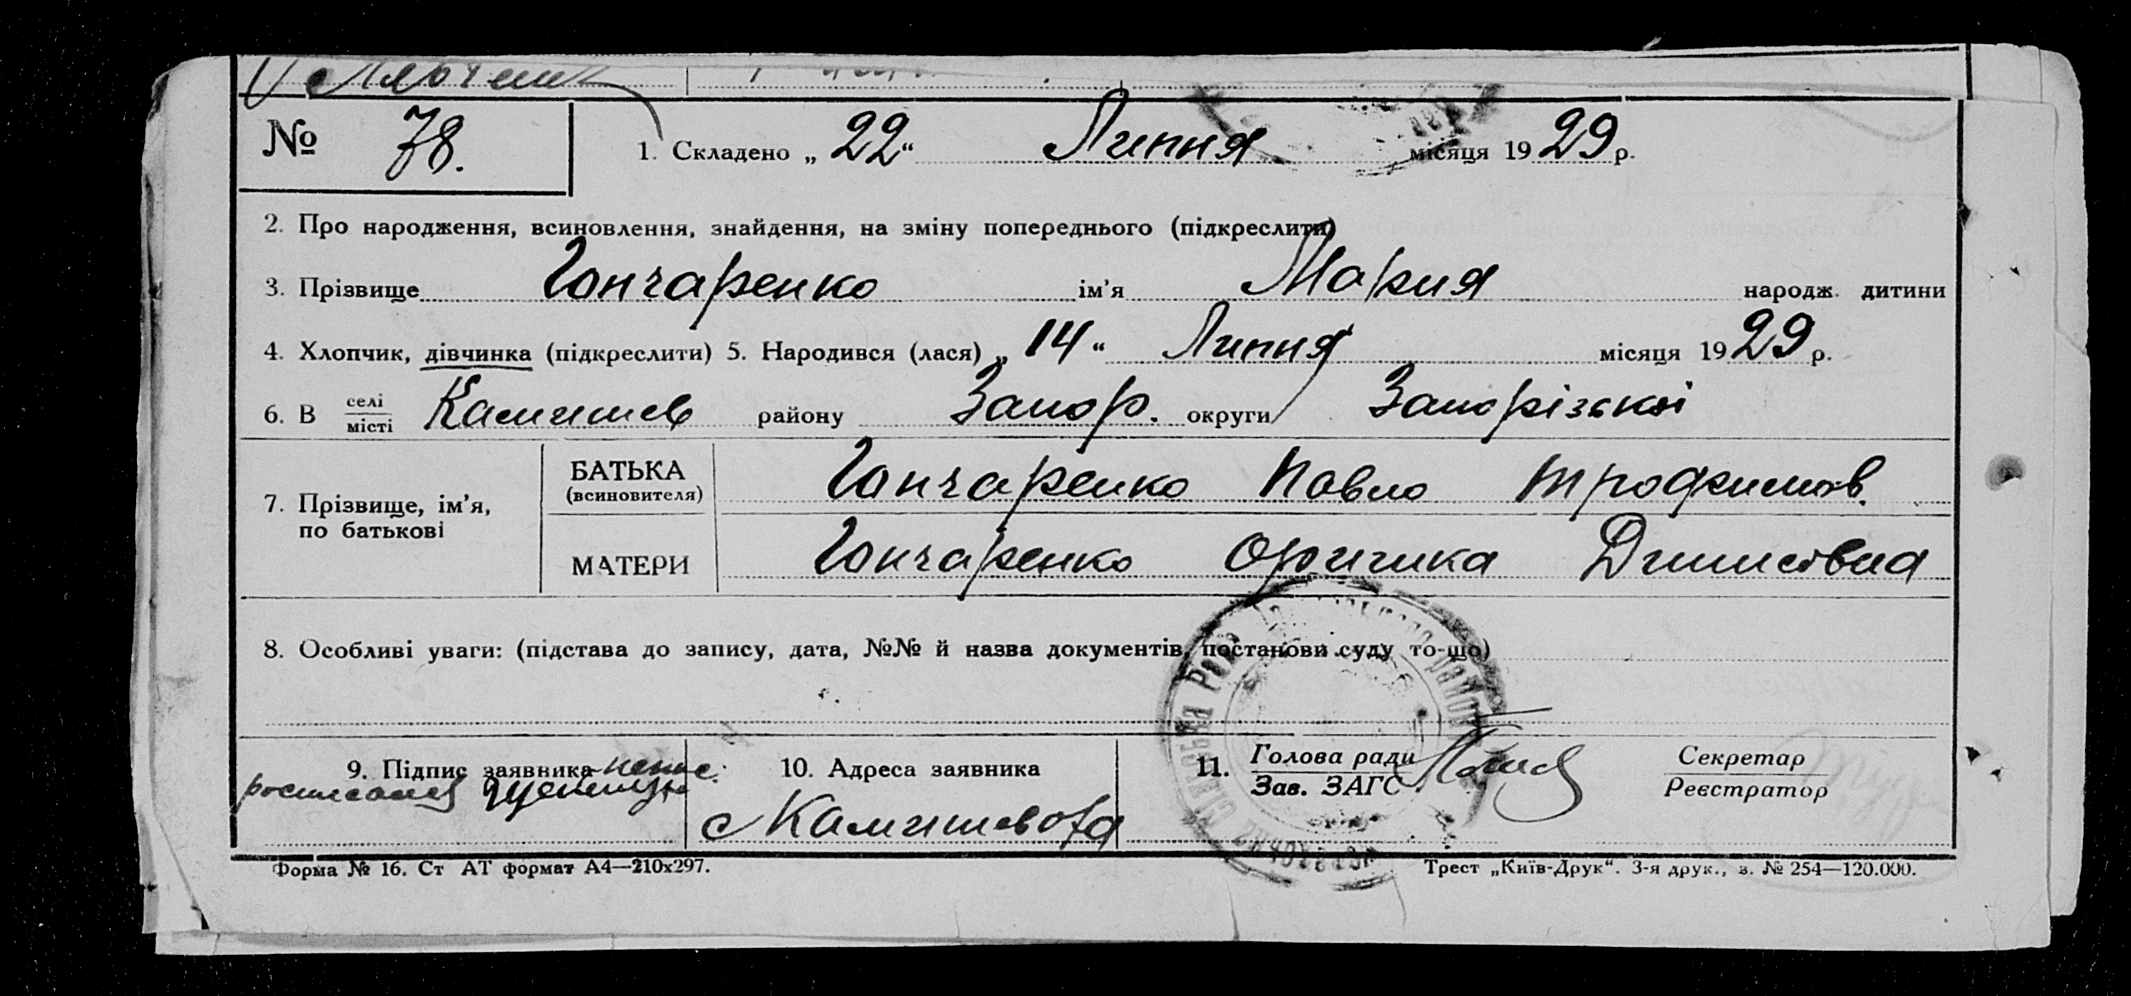 № 78. 1. Складено „ 22 “ Липня місяця 19 29 р.
2. Про народження, всиновлення, знайдення, на зміну попереднього (підкреслити)
3. Прізвище Гончаренко ім'я Мария народж. дитини
4. Хлопчик, дівчинка (підкреслити) 5. Народився (лася) „ 14 “ Липня місяця 19 29 р.
6. В селі місті Камишев району Запор. округи Запорізької
7. Прізвище, ім'я, по батькові
БАТЬКА (всиновителя) Гончаренко Павло Трофимов.
МАТЕРИ Гончаренко
8. Особливі уваги: (підстава до запису, дата, №№ й назва документів, постанови суду то-що)
9. Підпис заявника
10. Адреса заявника
с Камишеваха
11. Голова ради
Зав. ЗАГС
Секретар
Реєстратор
Форма № 16. Ст АТ формат А4—210x297.
Трест „Київ-Друк“. 3-я друк., з. № 254—120.000.